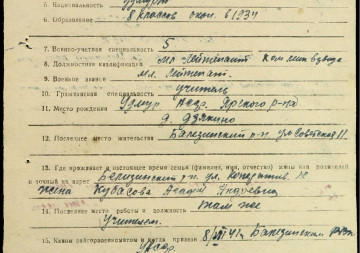 5. Национальность удмурт
6. Образование 8 классов окон. в 1934
7. Военно-учетная специальность 5
8. Должностная квалификация мл. лейтенант ком-р взвода
9. Военное звание мл. лейтенант.
10. Гражданская специальность учитель
11. Место рождения Удмур. АССР. Ярского р-на
д. Дзякино
12. Последнее место жительства Балезинский р-н ул. Советская 11.
13. Где проживает в настоящее время семья (фамилия, имя, отчество) жены или родителей
и точный их адрес Балезинский р-н ул.
жена Кубасова
там же
14. Последнее место работы и должность
Учителем.
15. Каким райгорвоенкоматом и когда призван 8/VIII 41г. Балезинским РВК
УАССР.